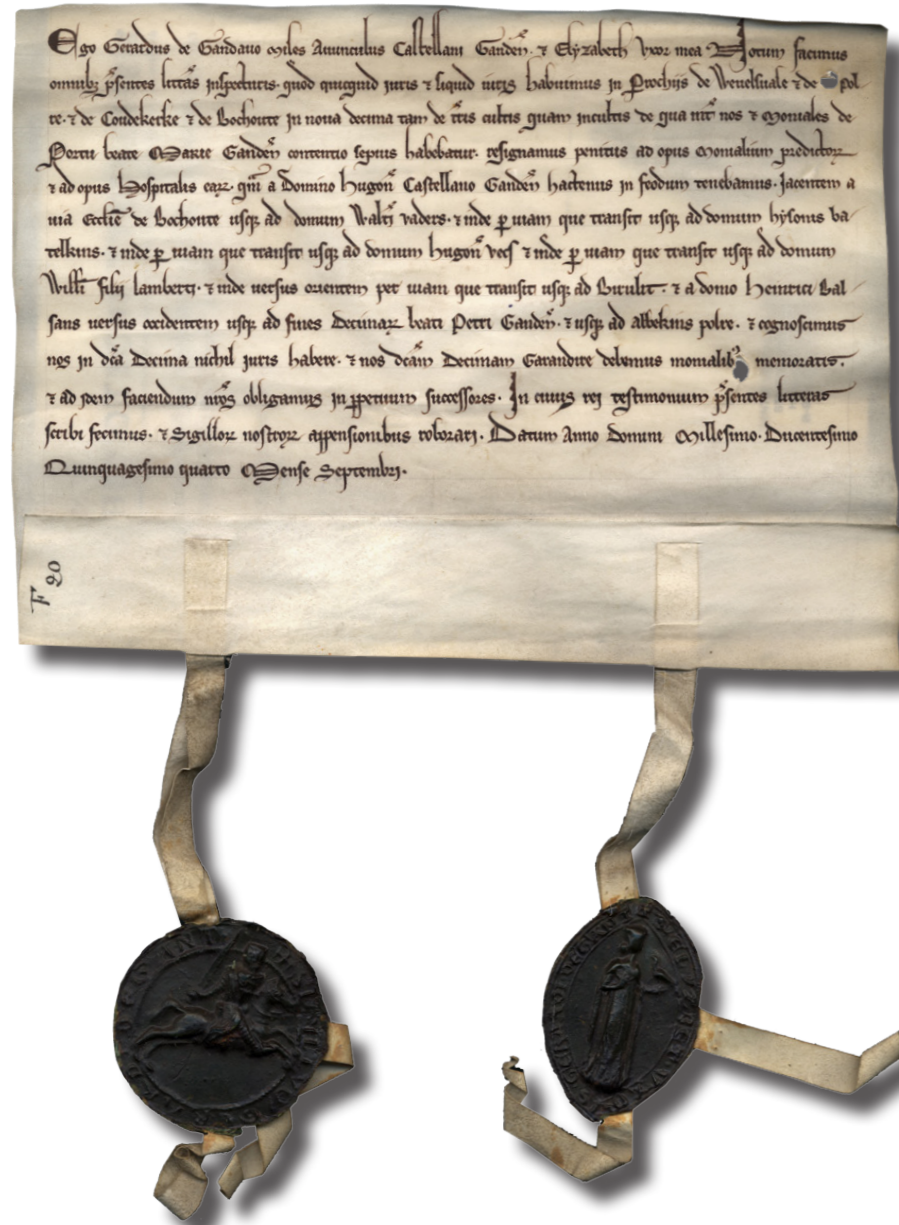 Ego Gerardus de Gandauo Miles Auunculus Castellani Gandeñ. ⁊ Elyzabeth Vxor mea Notum facimus
omnibꝫ p̃sentes litt̃as inspecturis. quod quicquid iuris ⁊ siquid iuris habuimus in Parrochijs de Weuelsuale ⁊ de pol
re. ⁊ de Coudekerke ⁊ de Bochoute in noua decima tam de t̃ris cultis quam incultis de qua int̃ nos ⁊ Moniales de
Portu beate Marie Gandeñ contentio sepius habebatur. resignamus penitus ad opus Monialium predictoꝝ
⁊ ad opus Hospitalis eaꝝ. qm̃ a Domino Hugoñ Castellano Gandeñ hactenus in feodum tenebamus. Jacentem a
uia Eccl̃ie de Bochoute usqꝫ ad domum Walt̃i vaders. ⁊ inde ꝑ uiam que transit usqꝫ ad domum hysonis ba
telkins. ⁊ inde ꝑ uiam que transit usqꝫ ad domum hugoñ vecs ⁊ inde ꝑ uiam que transit usqꝫ ad domum
Will̃i filij lamberti. ⁊ inde uersus orientem per uiam que transit usqꝫ ad Biruliet. ⁊ a domo Heinrici Bal
sans uersus occidentem usqꝫ ad fines Decimaꝝ beati Petri Gandeñ. ⁊ usqꝫ ad albekins polre. ⁊ cognoscimus
nos in dc̃a Decima nichil iuris habere. ⁊ nos dc̃am Decimam Garandire debemus monialibꝫ memoratis.
⁊ ad idem faciendum nr̃os obligamus in ꝑpetuum successores. In cuius rei testimonium p̃sentes litteras
scribi fecimus. ⁊ Sigilloꝝ nostroꝝ appensionibus roborari. Datum Anno Domini Millesimo. Ducentesimo
Quinquagesimo quarto Mense Septembri.
F 20